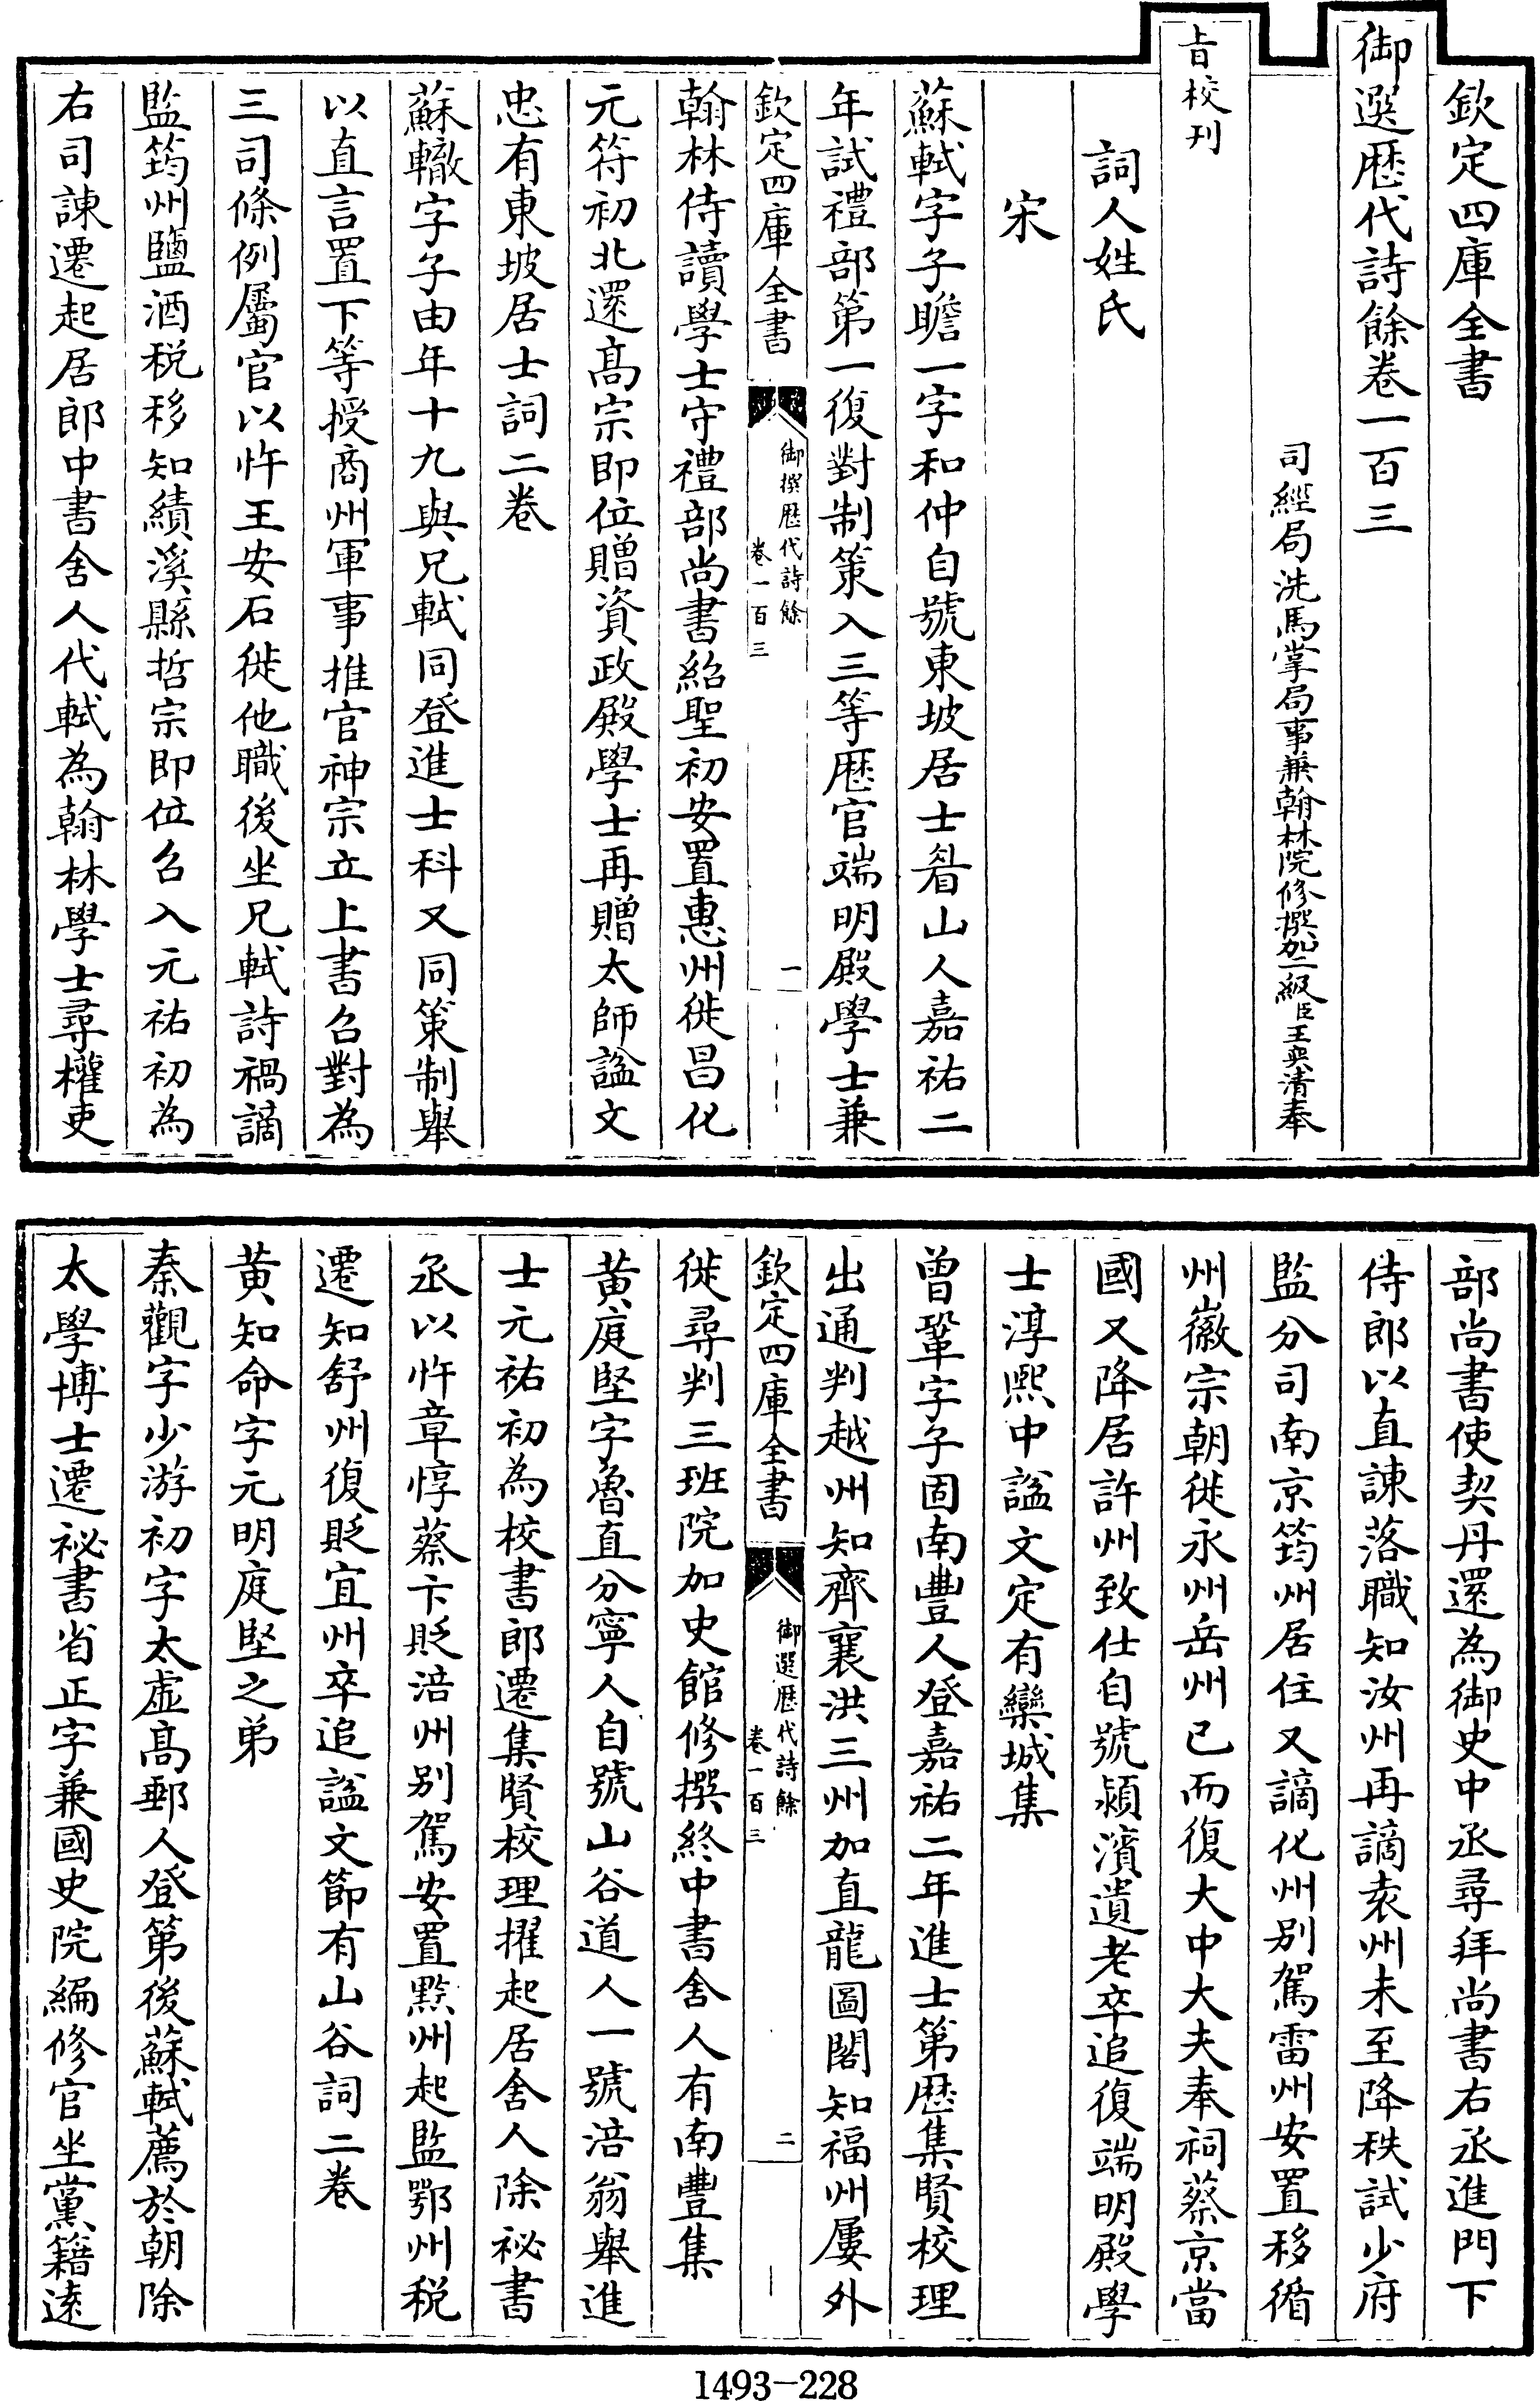 欽定四庫全書
御選歴代詩餘卷一百三
司經局洗馬掌局事兼翰林院修撰加二級臣王奕清奉
旨校刊
詞人姓氏
宋
蘇軾字子瞻一字和仲自號東坡居士眉山人嘉祐二
年試禮部第一復對制策入三等歴官端明殿學士兼
欽定四庫全書
御撰歴代詩餘
卷一百三
一
翰林侍讀學士守禮部尚書紹聖初安置惠州徙昌化
元符初北還髙宗即位贈資政殿學士再贈太師諡文
忠有東坡居士詞二卷
蘇轍字子由年十九與兄軾同登進士科又同策制舉
以直言置下等授商州軍事推官神宗立上書召對為
三司條例屬官以忤王安石徙他職後坐兄軾詩禍謫
監筠州鹽酒税移知績溪縣哲宗即位召入元祐初為
右司諫遷起居郎中書舍人代軾為翰林學士尋權吏
部尚書使契丹還為御史中丞尋拜尚書右丞進門下
侍郎以直諫落職知汝州再謫袁州未至降秩試少府
監分司南京筠州居住又謫化州别駕雷州安置移循
州徽宗朝徙永州岳州已而復大中大夫奉祠蔡京當
國又降居許州致仕自號潁濱遺老卒追復端明殿學
士淳熙中諡文定有欒城集
曾鞏字子固南豐人登嘉祐二年進士第歴集賢校理
出通判越州知齊襄洪三州加直龍圖閣知福州屢外
欽定四庫全書
御選歴代詩餘
卷一百三
二
徙尋判三班院加史館修撰終中書舍人有南豐集
黄庭堅字魯直分寧人自號山谷道人一號涪翁舉進
士元祐初為校書郎遷集賢校理擢起居舍人除祕書
丞以忤章惇蔡卞貶涪州别駕安置黔州起監鄂州税
遷知舒州復貶宜州卒追諡文節有山谷詞二卷
黄知命字元明庭堅之弟
秦觀字少游初字太虚髙郵人登第後蘇軾薦於朝除
太學博士遷祕書省正字兼國史院編修官坐黨籍逺
1493-228